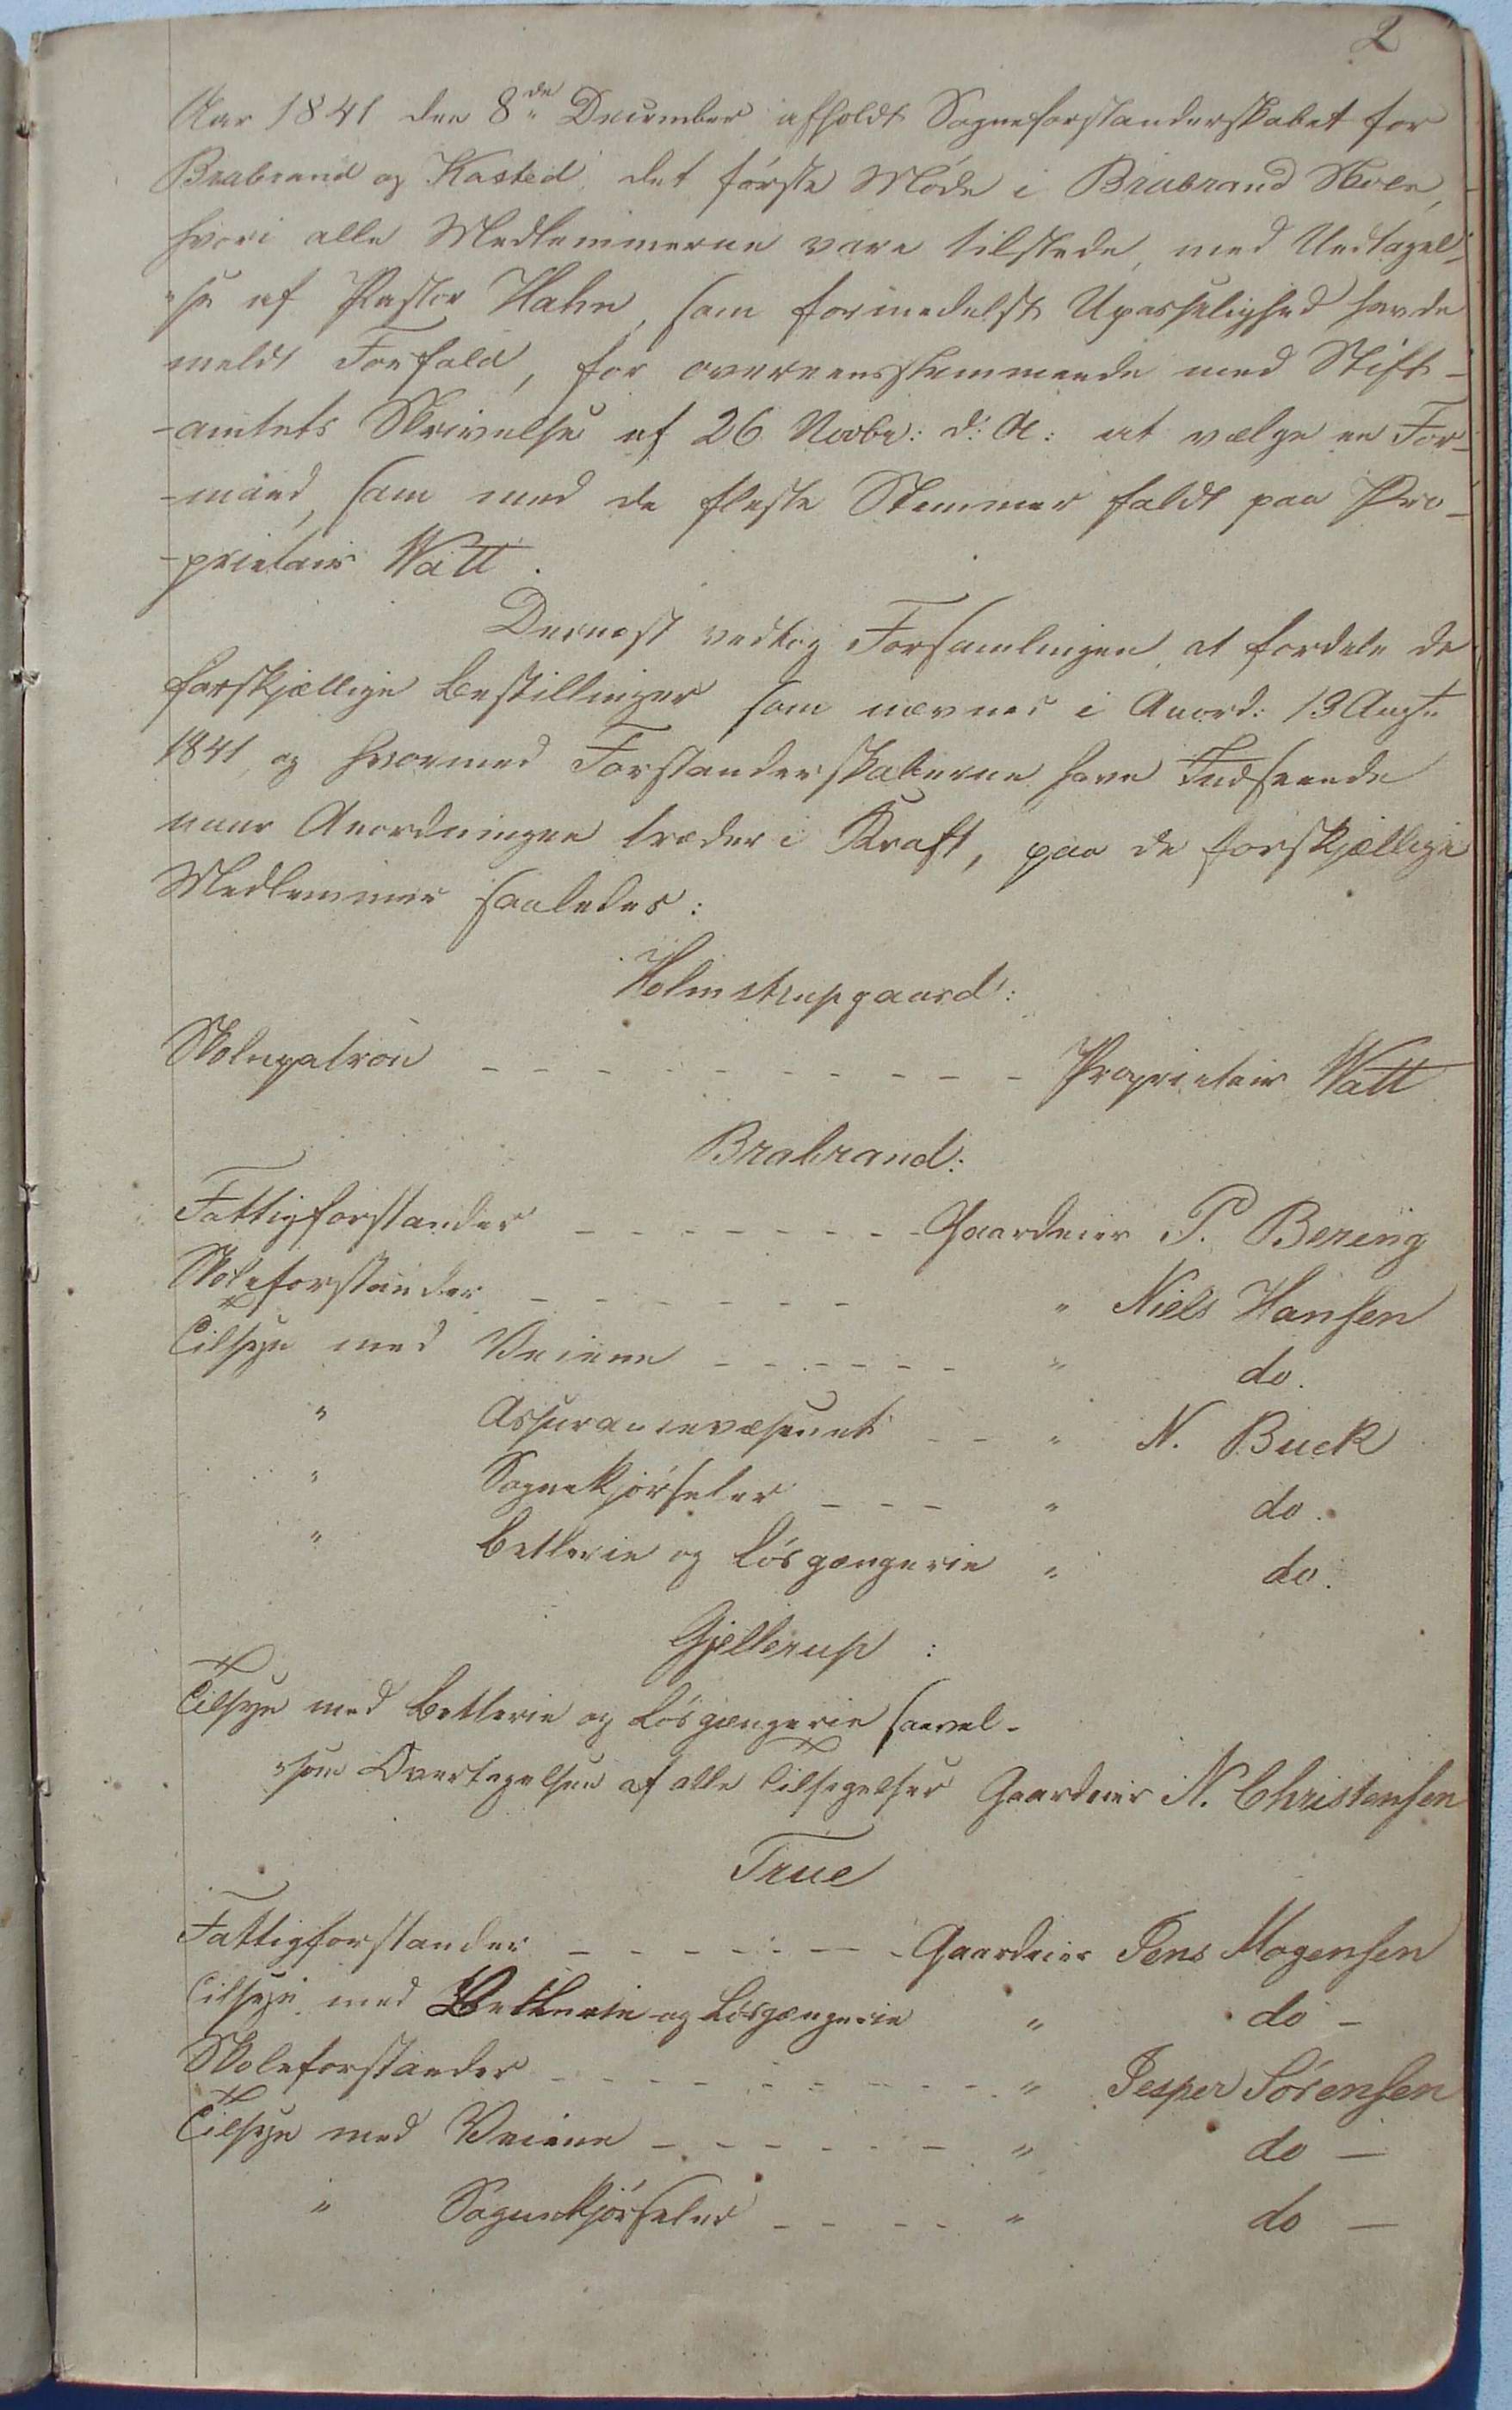 2
Aar 1841 den 8de December afholdt Sogneforstanderskabet for
Brabrand og Kasted det første Møde i Brabrand Skole,
hvori alle Medlemmerne vare tilstede, med Undtagel-
-se af Pastor Hahn, som formedelst Upasselighed havde
meldt Forfald, for overeensstemmende med Stift-
-amtets Skrivelse af 26 Novbr: d: A: at vælge en For-
-mand, som med de fleste Stemmer faldt paa Pro-
-prietair Watt.
Dernæst vedtog Forsamlingen at fordele de
forskjællige Bestillinger som nævnes i Anord: 13 Augst:
1841 og hvormed Forstanderskaberne have Indseende
naar Anordningen træder i Kraft, paa de forskjællige
Medlemmer saaledes:
Holmstrupgaard:
Skolepatron - - - - - - - - - - Proprietair Watt
Brabrand:
Fattigforstander - - - - - - - Gaardeier P. Bering
Skoleforstander - - - - - - - " Niels Hansen
Tilsyn med Veiene - - - - - - " do.
" Assurancevæsenet - - " N. Buck
" Sognekjørseler - - - " do.
" Betlerie og Løsgængerie " do.
Gjellerup:
Tilsyn med Betlerie og Løsgængerie saavel-
-som Overtagelsen af alle Tilsigelser Gaardeier N. Christensen
True
Fattigforstander - - - - - - - Gaardeier Jens Mogensen
Tilsyn med Betlerie og Løsgængerie " do -
Skoleforstander - - - - - - - - - - " Jesper Sørensen
Tilsyn med Veiene - - - - - - " do -
" Sognekjørseler - - - - " do -